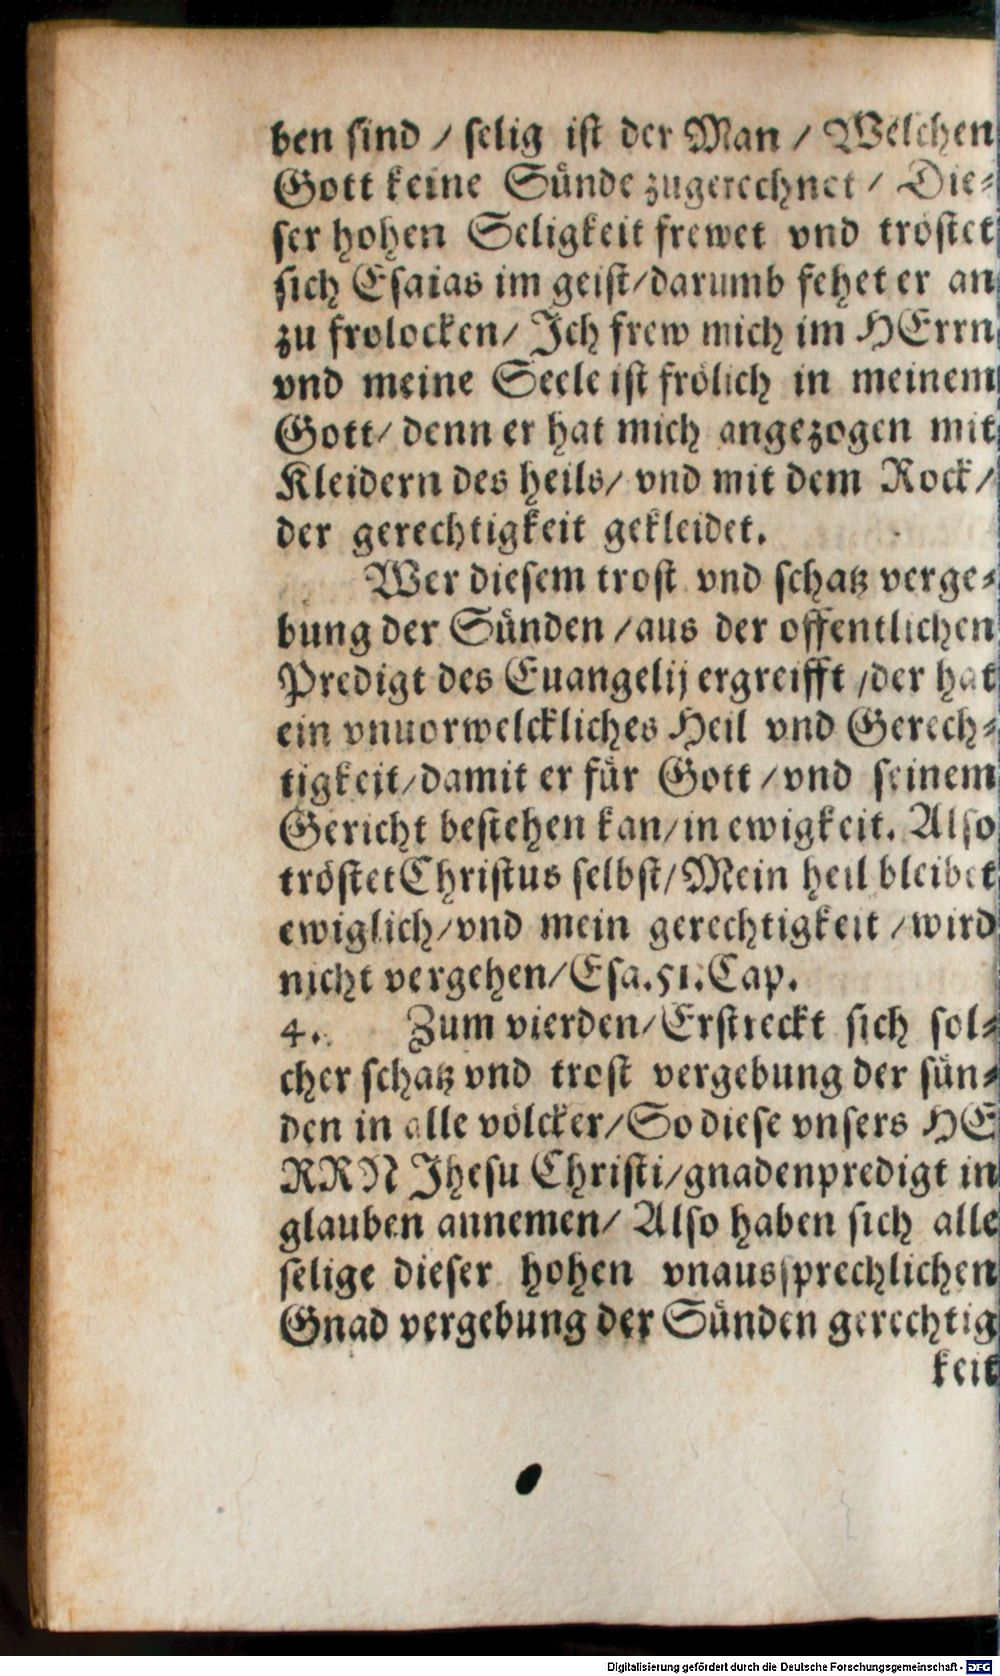 ben sind / selig ist der Man / Welchen
Gott keine Sünde zugerechnet / Die⸗
ser hohen Seligkeit frewet vnd tröstet
sich Esaias im geist/darumb fehet er an
zu frolocken/ Ich frew mich im HErrn
vnd meine Seele ist frölich in meinem
Gott/ denn er hat mich angezogen mit
Kleidern des heils/ vnd mit dem Rock/
der gerechtigkeit gekleidet.
Wer diesem trost vnd schatz verge⸗
bung der Sünden /aus der offentlichen
Predigt des Euangelij ergreifft /der hat
ein vnuorwelckliches Heil vnd Gerech⸗
tigkeit/damit er für Gott /vnd seinem
Gericht bestehen kan/in ewigkeit. Also
tröstet Christus selbst/Mein heil bleibet
ewiglich/vnd mein gerechtigkeit /wird
nicht vergehen/Esa.51.Cap.
4. Zum vierden/Erstreckt sich sol⸗
cher schatz vnd trost vergebung der sün⸗
den in alle völcker/So diese vnsers HE
RRN Jhesu Christi/gnadenpredigt in
glauben annemen/ Also haben sich alle
selige dieser hohen vnaussprechlichen
Gnad vergebung der Sünden gerechtig
keit
Digitalisierung gefördert durch die Deutsche Forschungsgemeinschaft - DFG